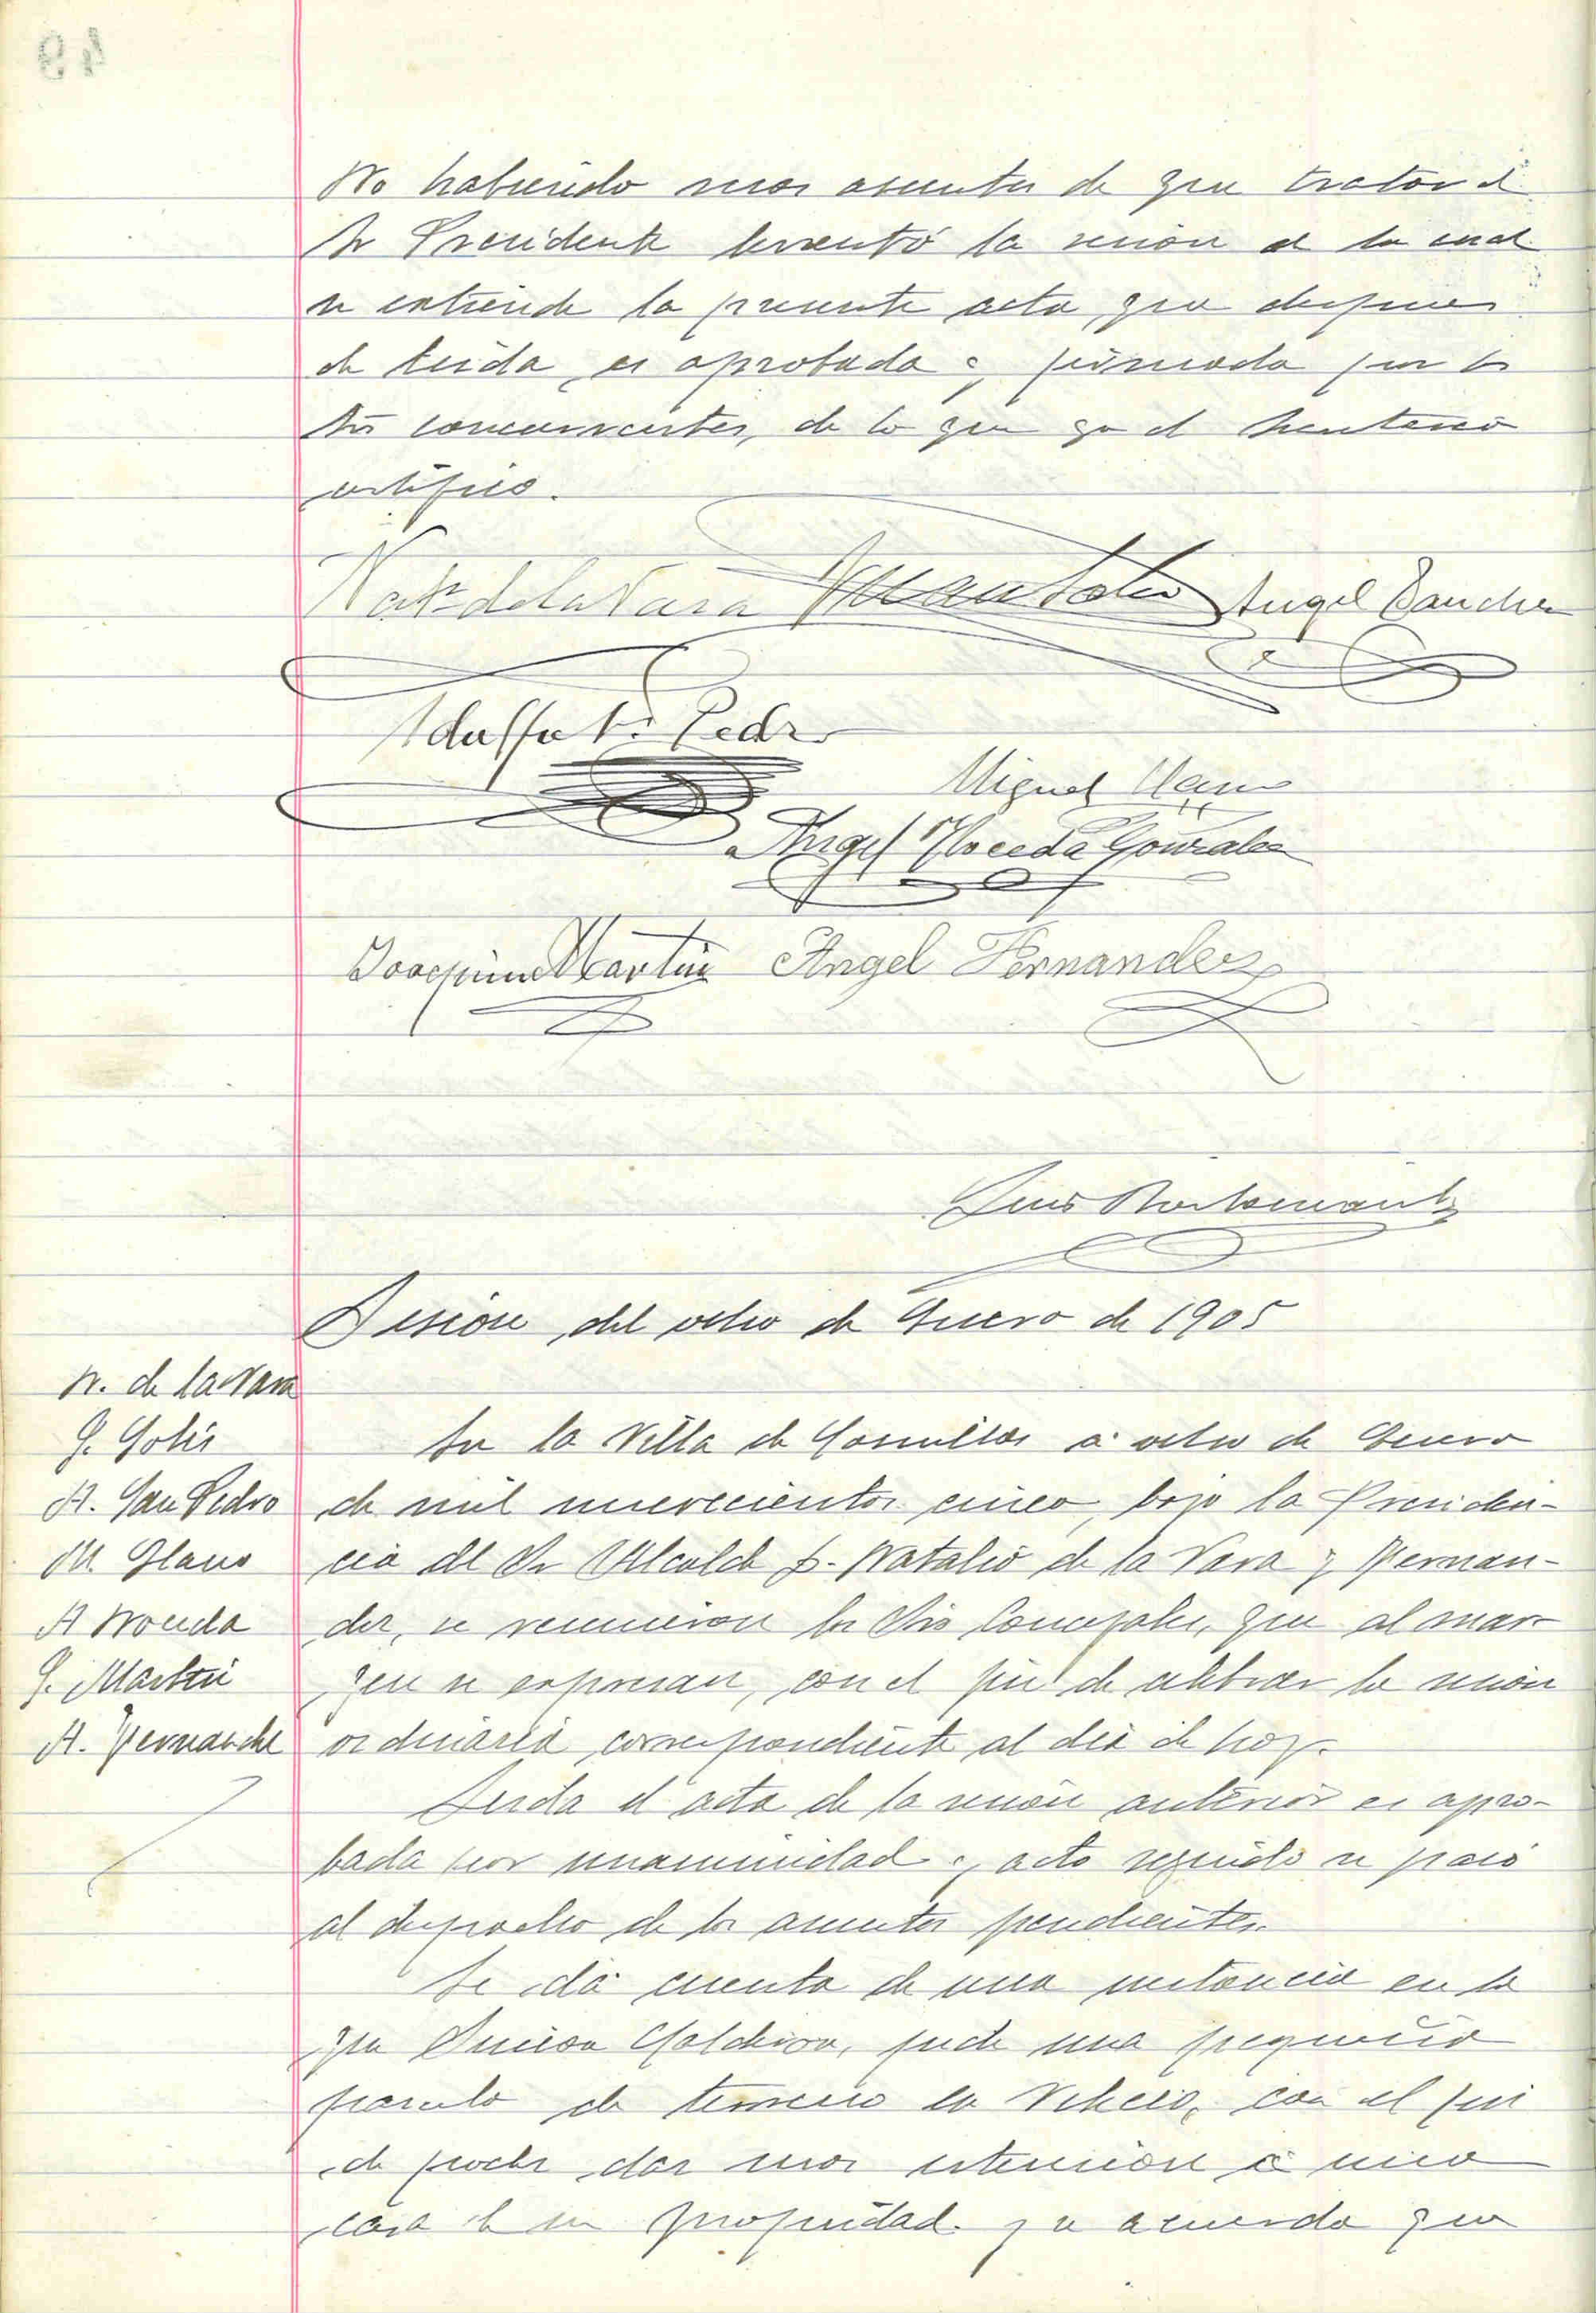 No habiendo mas asuntos de que tratar el
Sr Presidente levantó la sesion de la cual
se extiende la presente acta, que despues
de leida, es aprobada y firmada por los
Srs concurrentes, de lo que yo el Secretario
certifico.
Nat. de la Vara Juan Solis Angel Sanchez
Adolfo S. Pedro
Miguel Llano
Angel Noceda Gonzalez
Joaquin Martin Angel Fernandez
Sesion del ocho de Enero de 1905
N. de la Vara
J. Solis
A. San Pedro
M. Llano
A Noceda
J. Martin
A. Fernandez
En la Villa de Comillas á ocho de Enero
de mil novecientos cinco, bajo la Presiden-
cia del Sr Alcalde D. Natalio de la Vara y Fernan-
dez, se reunieron los Srs Concejales, que al mar-
gen se expresan, con el fin de celebrar la sesion
ordinaria, correspondiente al dia de hoy.
Leida el acta de la sesion anterior es apro-
bada por unanimidad y acto seguido se pasó
al despacho de los asuntos pendientes.
Se dá cuenta de una instancia en la
que pide una pequeña
parcela de terreno en con el fin
de poder dar mas estension á una
casa de su propiedad y se acuerda que